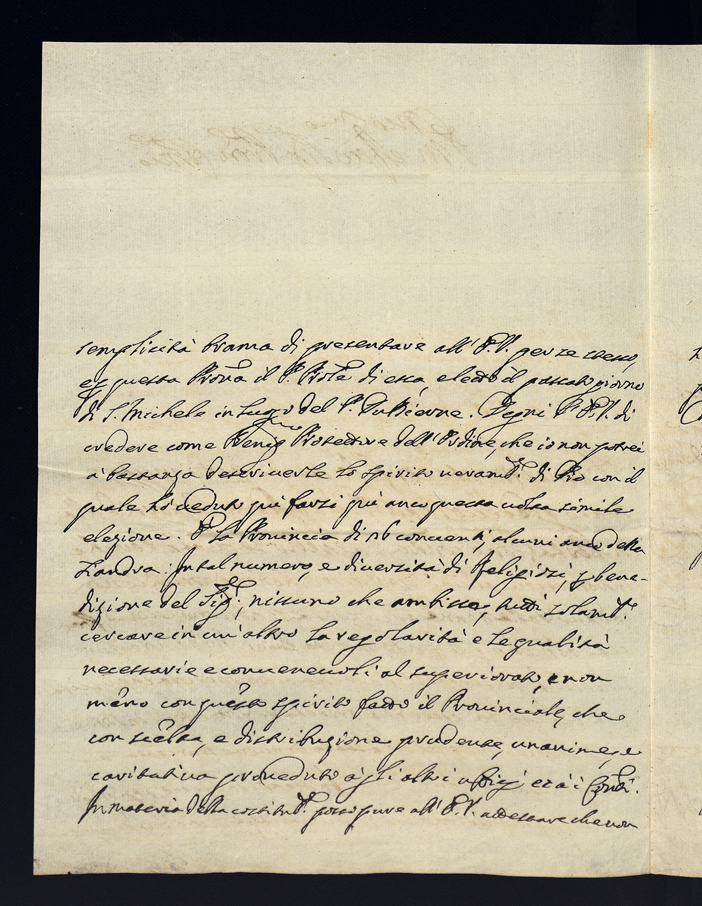 semplicità brama di presentare all' E.V. per se stesso,
questa Prova il P. di essa, eletto il passato giorno
di S. Michele in luogo del P. Degni P. E.V. di
credere come Protettore dell' Ordine, che io non potrei
à bastanza descriverle lo spirito veram.te di Dio con il
quale hò veduto quì farsi più anco questa volta simile
elezione. È la Provincia di 16 conventi, alcuni anco della
Fiandra. In tal numero, e diversità di Religiosi, per bene-
dizione del Sig.re, nissuno che ambisse, tutti solam.te
cercare in un' altro la regolarità e le qualità
necessarie e convenevoli al superiorato, e non
meno con questo spirito fatto il Provinciale, che
con scelta, e distribuzione prudente, unanime, e
caritativa proveduto à gli altri uffizi, et à i Conv.ti.
In materia della costitu.ne posso pure all' E.V. attestare che non